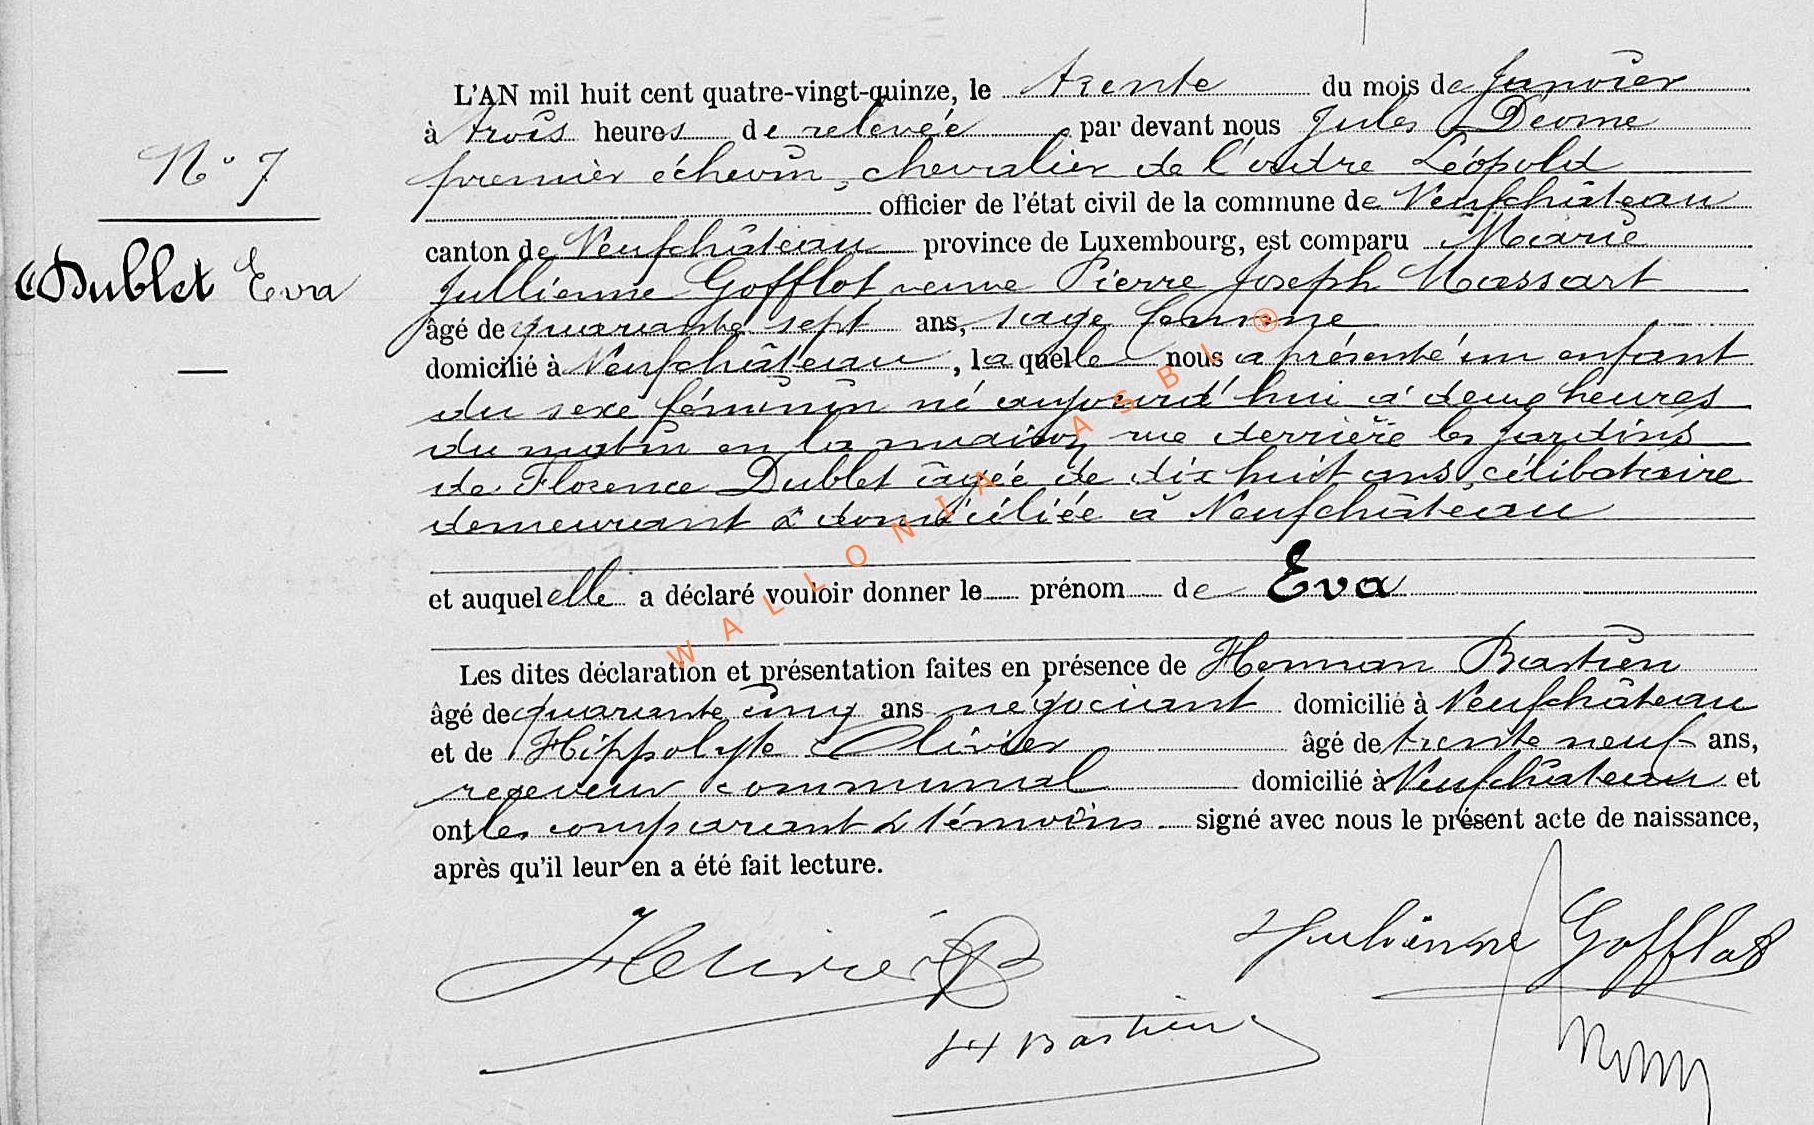 N° 7
Dublet Eva
L'AN mil huit cent quatre-vingt-quinze, le trente du mois de Janvier
à trois heures de relevée par devant nous Jules Déome
premier échevin, chevalier de l'ordre Léopold
officier de l'état civil de la commune de Neufchâteau
canton de Neufchâteau province de Luxembourg, est comparu Marie
Jullienne Gofflot veuve Pierre Joseph Massart
âgé de quarante sept ans, sage femme
domicilié à Neufchâteau, laquelle nous a présenté un enfant
du sexe féminin né aujourd'hui à deux heures
du matin en la maison rue derrière les jardins
de Florence Dublet âgée de dix huit ans, célibataire
demeurant & domiciliée à Neufchâteau
et auquel elle a déclaré vouloir donner le prénom de Eva
Les dites déclaration et présentation faites en présence de Herman Bastien
âgé de quarante cinq ans négociant domicilié à Neufchâteau
et de Hippolyte Olivier âgé de trente neuf ans,
receveur communal domicilié à Neufchâteau et
ont les comparant & témoins signé avec nous le présent acte de naissance,
après qu'il leur en a été fait lecture.
HOlivier
Julienne Gofflot
H Bastien
WALLONIA ASBL ®